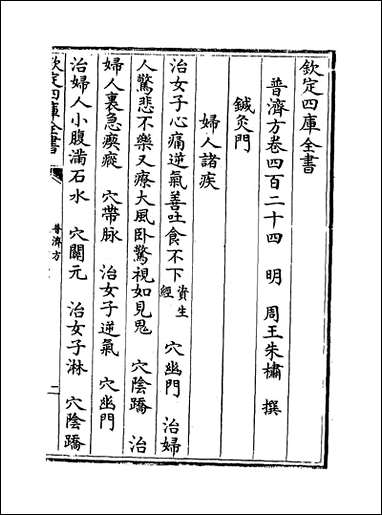 欽定四庫全書
普濟方卷四百二十四 明 周王朱橚 撰
鍼灸門
婦人諸疾
治女子心痛逆氣善吐食不下資生經 穴幽門 治婦
人驚悲不樂又療大風卧驚視如見鬼 穴陰蹻 治
婦人裏急瘈瘲 穴帶脉 治女子逆氣 穴幽門
治婦人小腹滿石水 穴關元 治女子淋 穴陰蹻
欽定四庫全書
普濟方
二